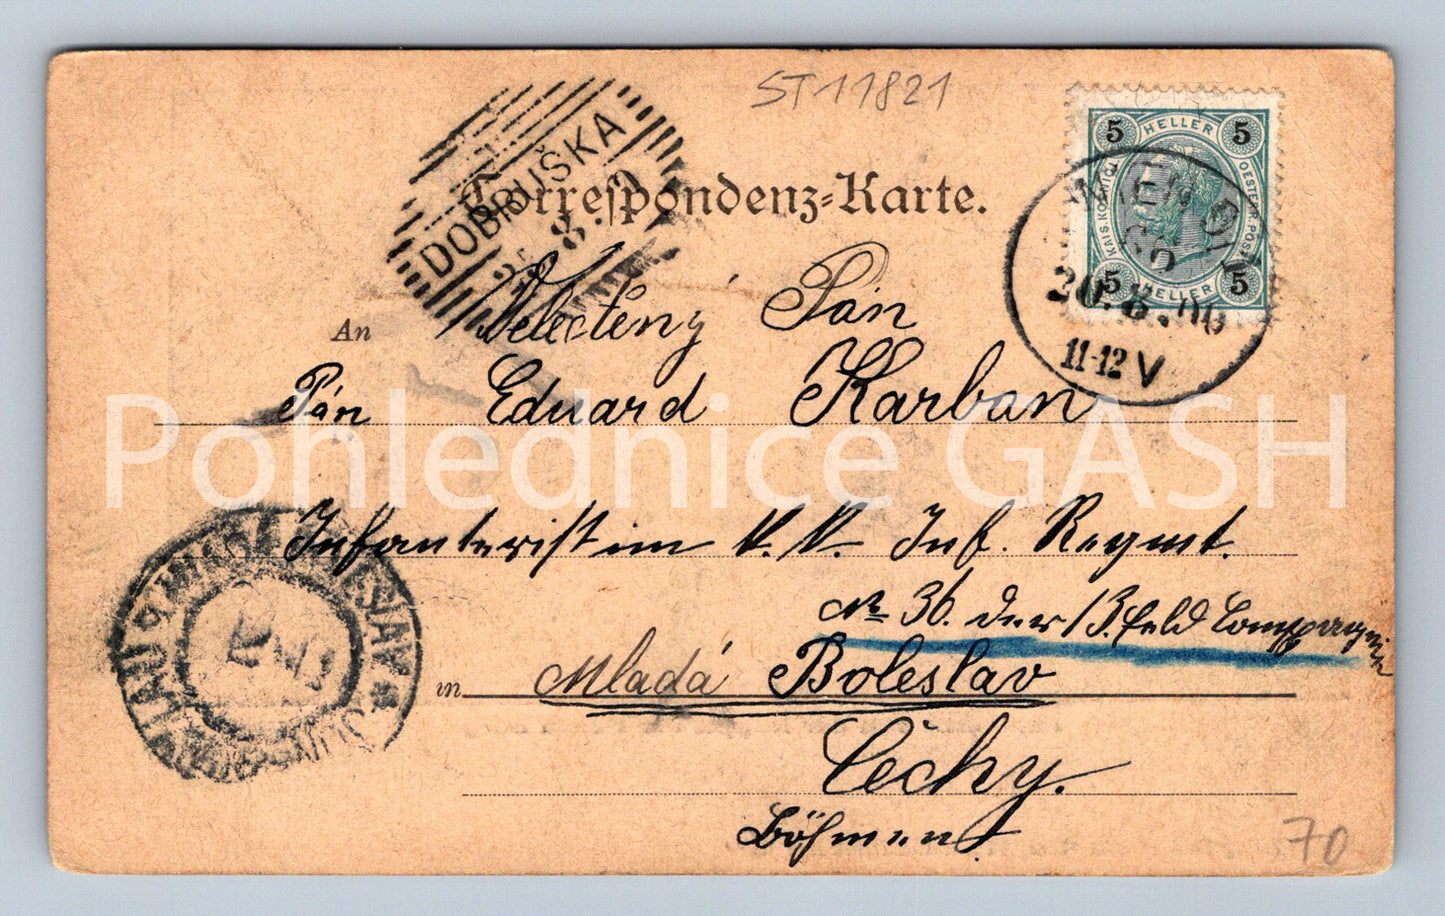 ST11821
Correspondenz-Karte.
5 HELLER 5
KAIS. KÖNIGL. OESTERR. POST
5 HELLER 5
DOBRUŠKA
8.
WIEN
20.8.00
11-12V
An Velectěný Pán
Pán Eduard Karban
Infanterist im k. k. Inf. Regmt.
№ 36. der 13. Feld Compagnie
in Mladá Boleslav
Čechy.
Böhmen
JUNGBUNZLAU
MLADÁ BOLESLAV
70
Pohlednice GASH